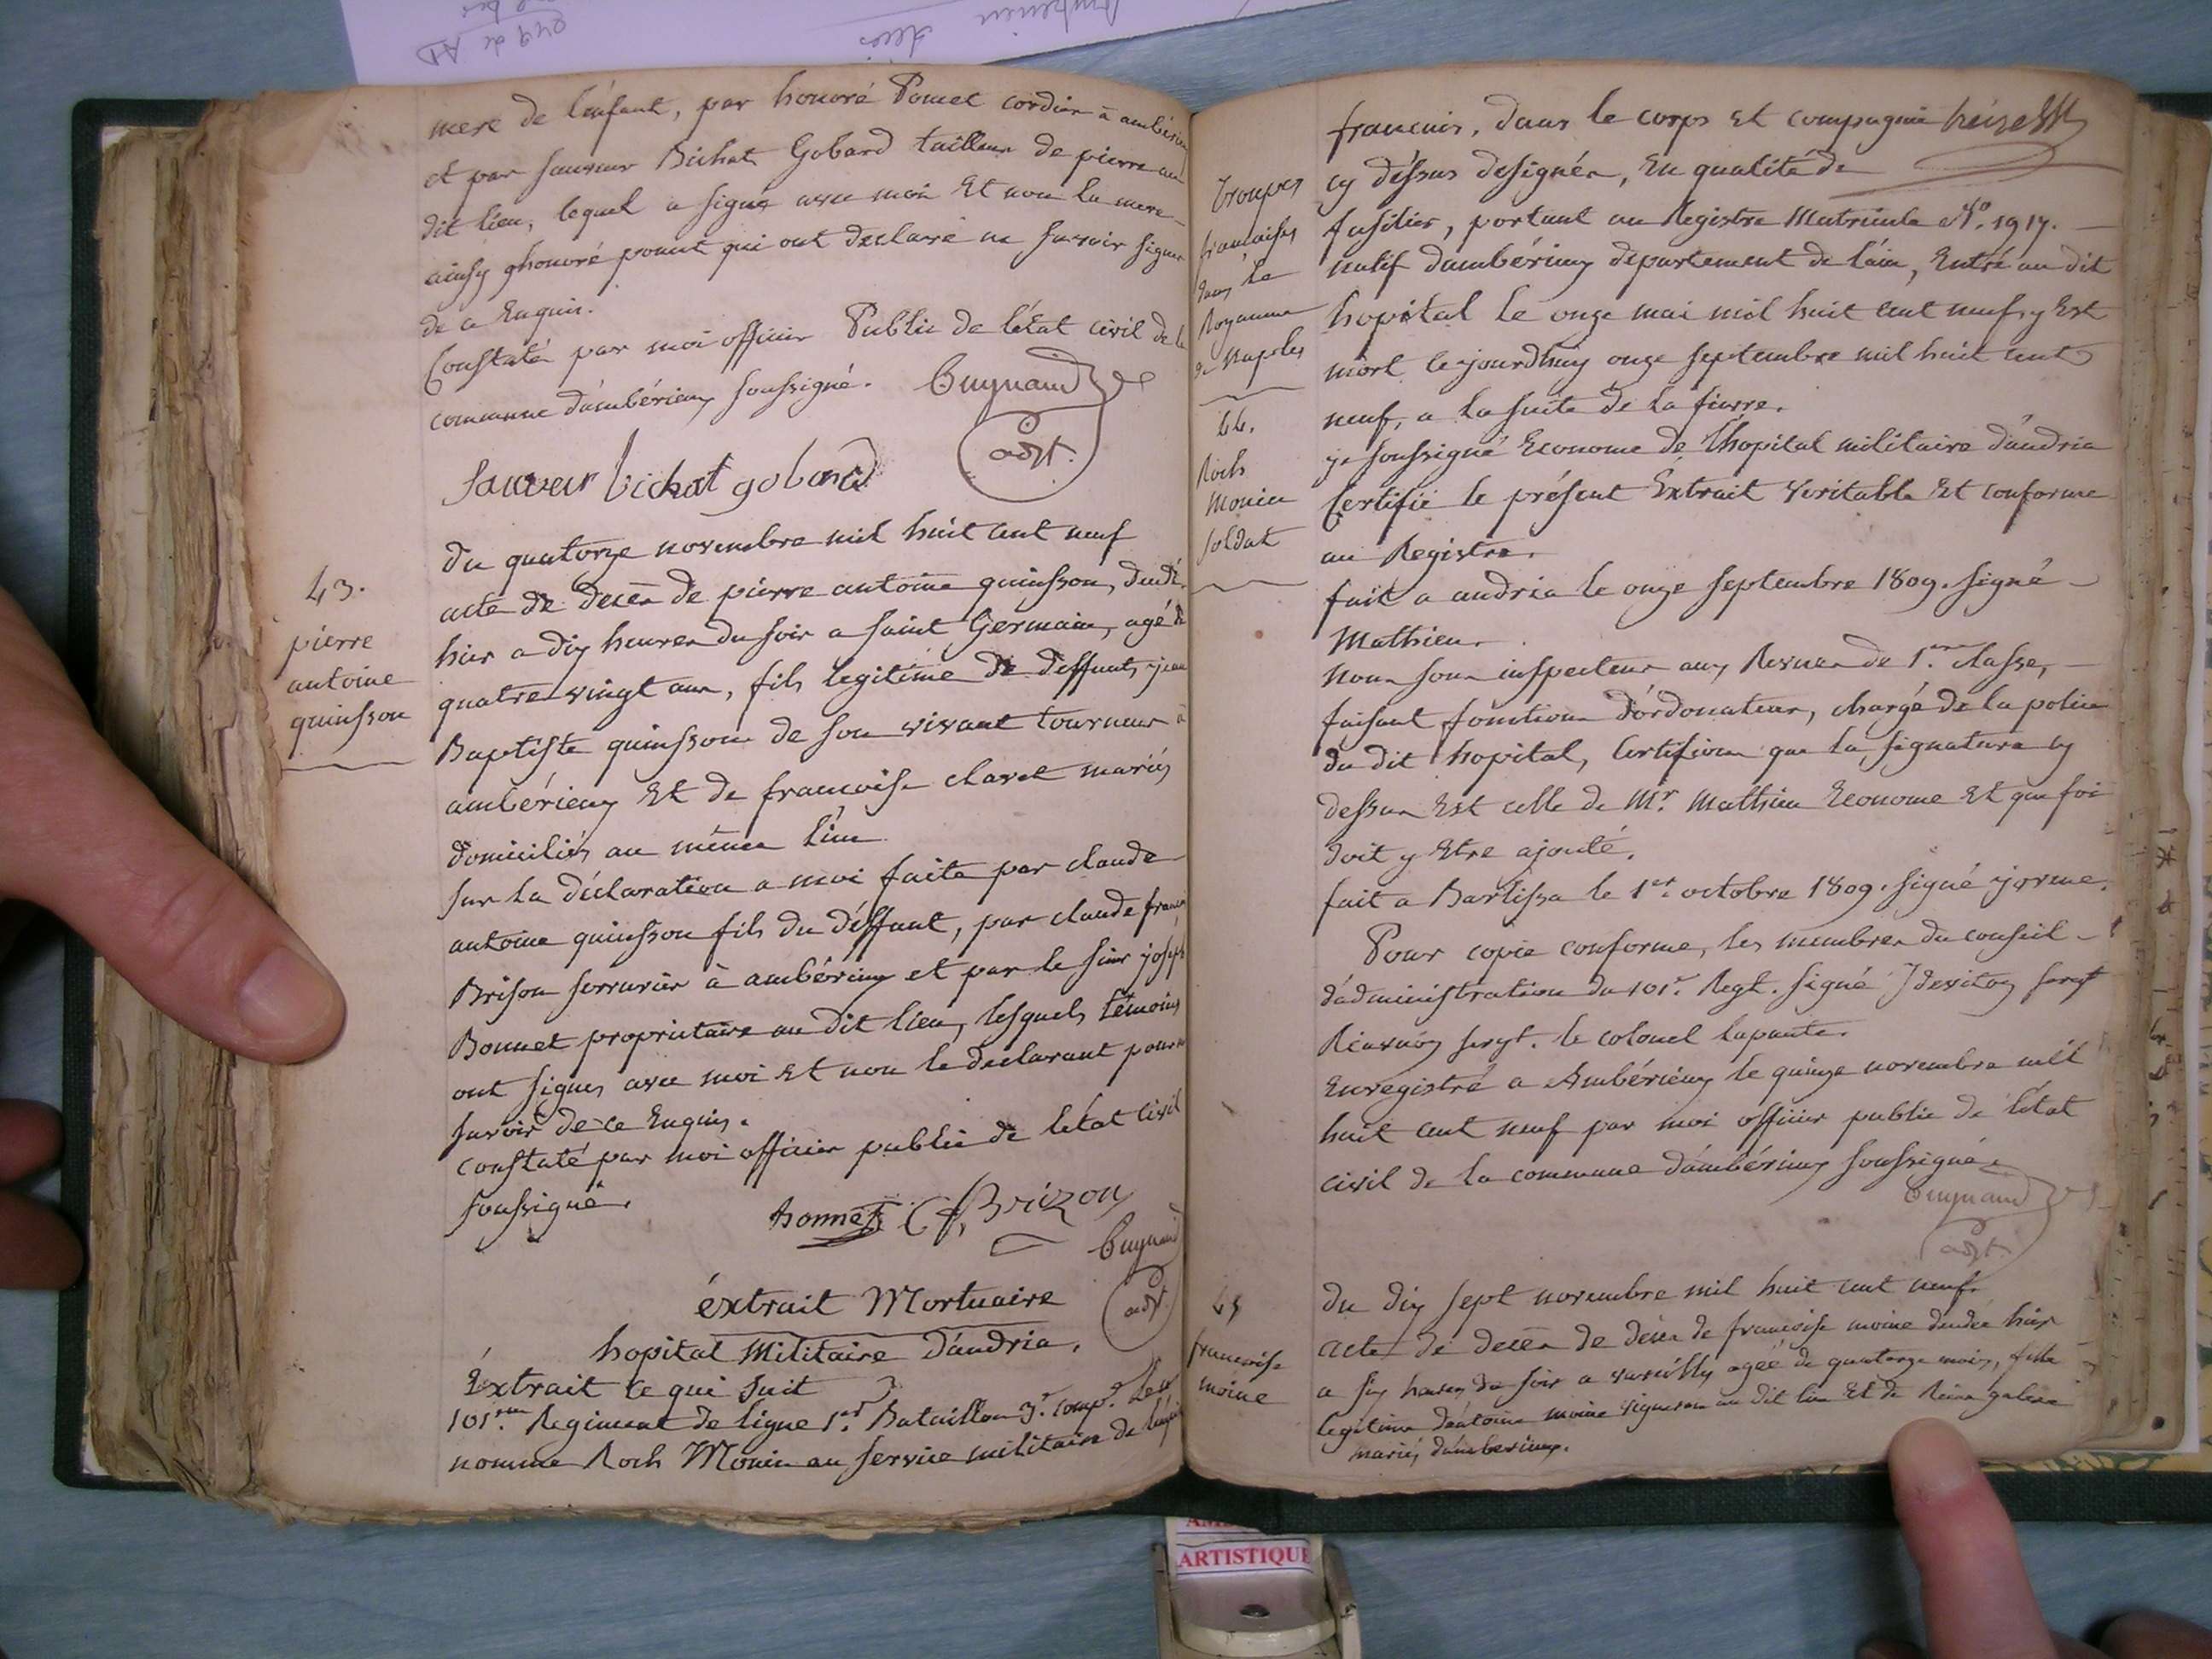 mere de lénfant, par honoré Pomet cordier à ambérieux
et par sauveur Bichat Gobard tailleur de pierre au
dit lieu, lequel a signé avec moi Et non la mere
ainsy qhonoré pomet qui ont declaré ne savoir signer
de ce Enquis.
Constaté par moi officier Public de létat civil de la
commune dámbérieux soussigné. Cuynaud
adjt.
sauveur bichat gobard
43.
pierre
antoine
quinsson
du quatorze novembre mil huit cent neuf
acte de decès de pierre antoine quinsson, decdé
hier a dix heures du soir a saint Germain, agé de
quatre vingt ans, fils legitime de deffunts jean
Baptiste quinsson de son vivant tourneur à
ambérieux Et de francoise claret mariés
domiciliés au même lieu
sur la déclaration a moi faite par claude
antoine quinsson fils du déffunt, par claude françois
Brison serrurier à ambérieux et par le sieur joseph
Bonnet proprietaire au dit lieu, lesquels témoins
ont signés avec moi Et non le declarant pour ne
savoir de ce Enquis.
constaté par moi officier public de létat civil
soussigné.
bonnet C f Brizon
Cuynaud
adjt.
éxtrait Mortuaire
hopital Militaire Dándria.
Éxtrait ce qui suit
101.me Regiment de ligne 1.er Bataillon 3.e comp.e Le
nommé Roch Monin au service militaire de
francais, dans le corps Et compagnie
cy déssus designés, En qualité de
fusilier, portant au Registre Matricule N.o 1917.
natif dámbérieux departement de láin, Entré au dit
hopital le onze mai mil huit cent neuf, y Est
mort cejourdhuy onze septembre mil huit cent
neuf, a la suite de la fievre.
je soussigné Econome de lhopital militaire dándria
Certifie le présent Extrait veritable Et conforme
au Registre.
fait a andria le onze septembre 1809. signé
Mathieu.
nous sous inspecteur aux Revues de 1.ere classe,
faisant fonctions dórdonateur, chargé de la police
du dit hopital, Certifions que la signature cy
dessus Est celle de Mr. Mathieu Econome Et que foi
doit y Etre ajouté.
fait a Barlissa le 1.er octobre 1809. signé
Pour copie conforme, les membres du conseil
dádministration du 101.e Regt. signé
sergt. le colonel
Enregistré a Ambérieux le quinze novembre mil
huit cent neuf par moi officier public de létat
civil de la commune dámbérieux soussigné.
Cuynaud
adjt.
troupes
françaises
dans le
Royaume
de Naples
44.
Roch
monin
soldat
45
francoise
moine
du dix sept novembre mil huit cent neuf
acte de decès de decès de francoise moine decdée hier
a six heures du soir a vareilly agée de quatorze mois, fille
legitime dántoine moine vigneron au dit lieu Et de Reine
mariés dámberieux.
ARTISTIQUE